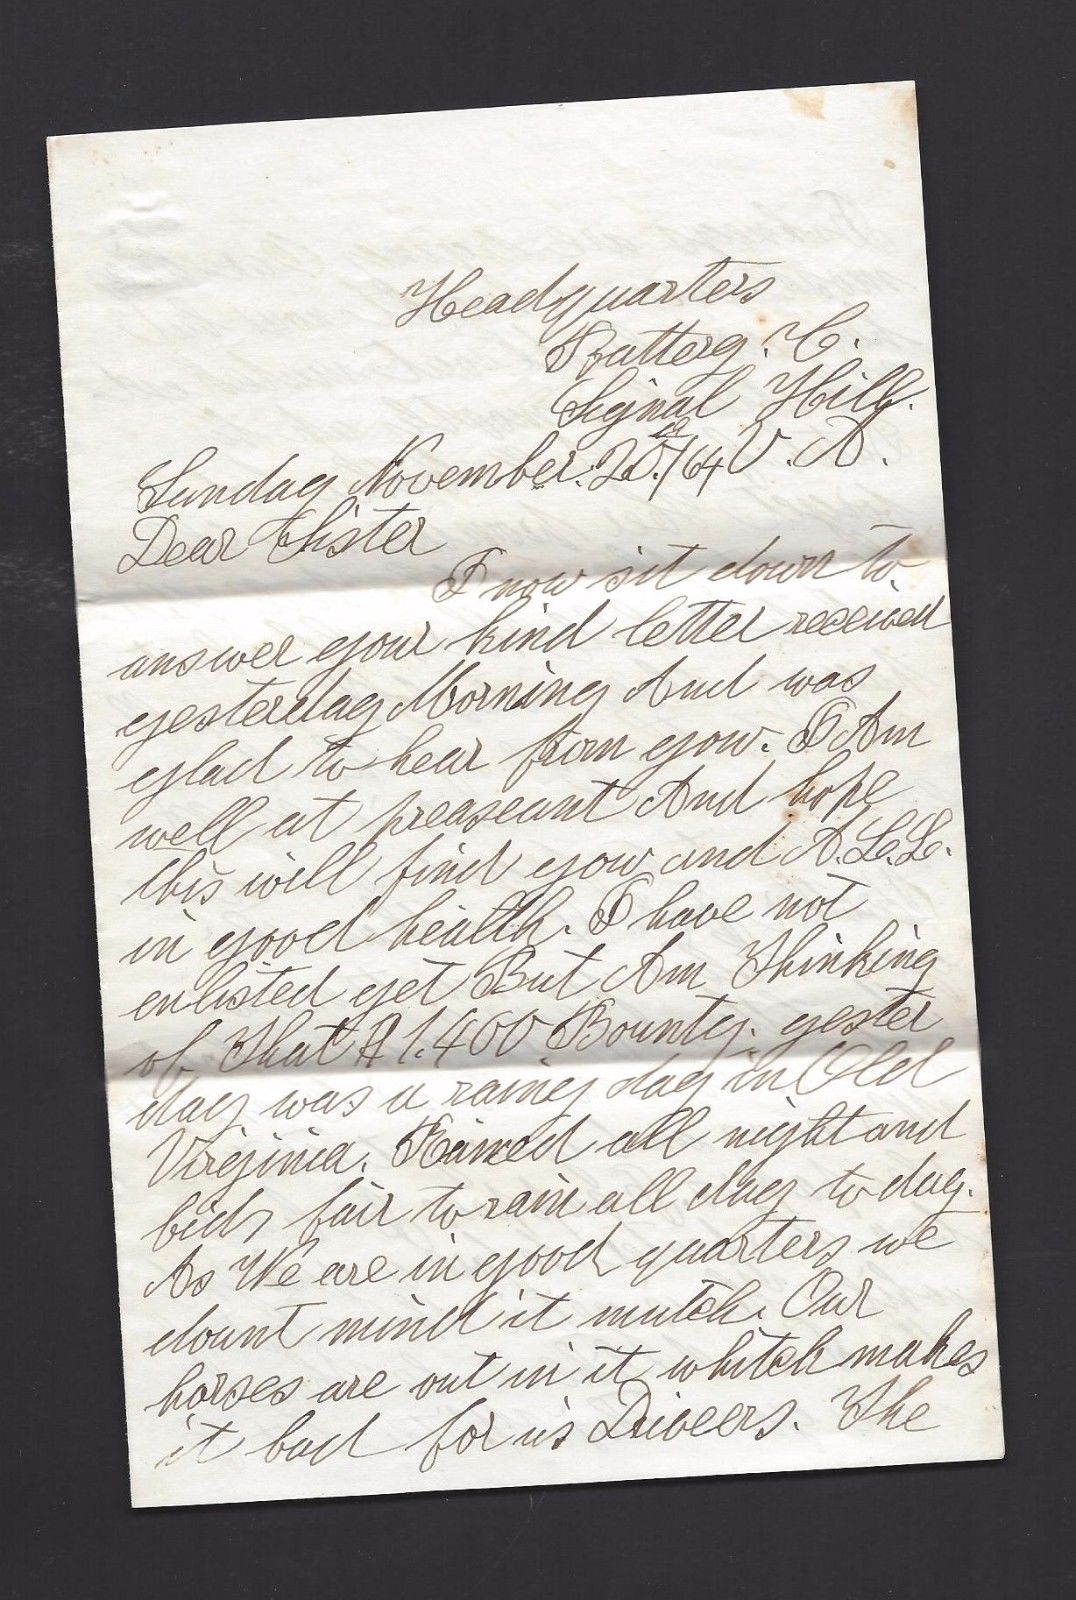 Headquarters
Battery. C.
Signal Hill.
Sunday November. 20.th/64 V. A.
Dear Sister
I now sit down to
answer your kind letter received
yesterday Morning And was
glad to hear from yow. I Am
well at preaseant And hope
this will find yow and A.L.L.
in good health. I have not
enlisted yet But Am Thinking
of That $ 1.400 Bounty. yester
day was a rainy day in Old
Virginia. Rained all night and
bids fair to rain all day to day.
As We are in good quarters we
dount mind it mutch. Our
horses are out in it whitch makes
it bad for us Drivers. The